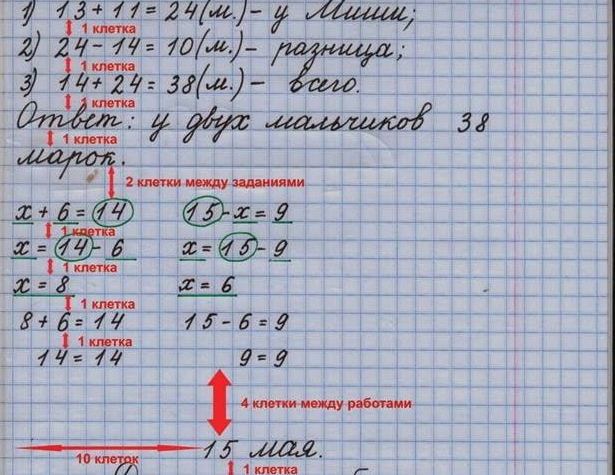 1) 13 + 11 = 24 (м.) – у Миши;
1 клетка
2) 24 – 14 = 10 (м.) – разница;
1 клетка
3) 14 + 24 = 38 (м.) – всего.
1 клетка
Ответ: у двух мальчиков 38
1 клетка
марок.
2 клетки между заданиями
x + 6 = 14 15 - x = 9
1 клетка
x = 14 - 6 x = 15 - 9
1 клетка
x = 8 x = 6
1 клетка
8 + 6 = 14 15 - 6 = 9
1 клетка
14 = 14 9 = 9
4 клетки между работами
15 мая.
10 клеток
1 клетка